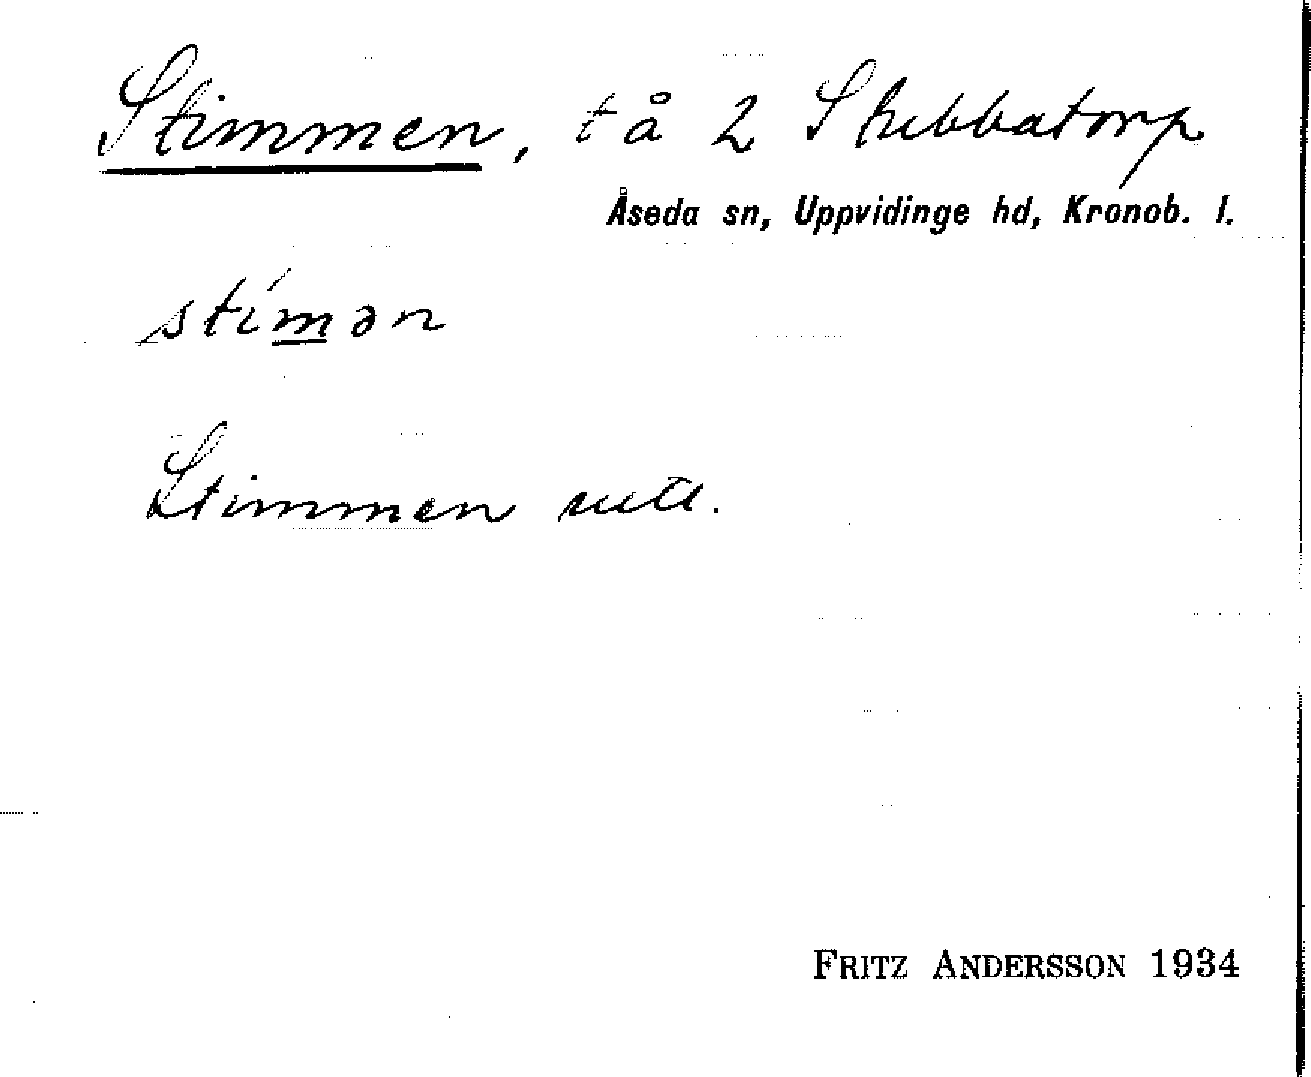 Stimmen, tå 2 Skubbatorp
Åseda sn, Uppvidinge hd, Kronob. l.
stímən
Stimmen
FRITZ ANDERSSON 1934